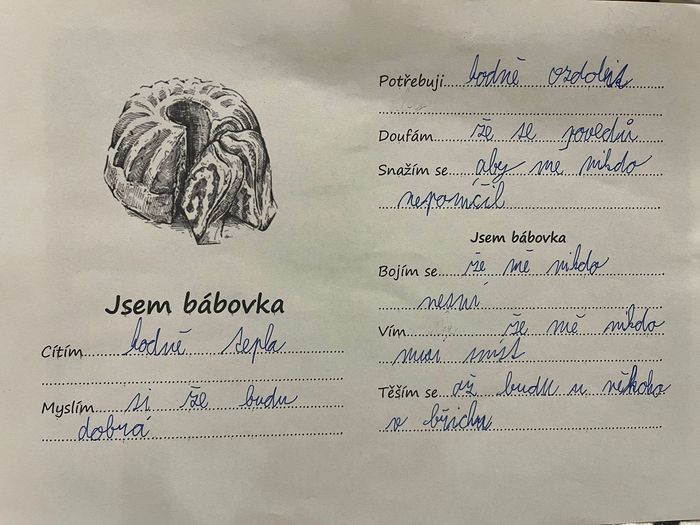 Jsem bábovka
Cítím hodně tepla
Myslím si že budu
dobrá
Potřebuji hodně ozdobit
Doufám že se povedů
Snažím se aby me nikdo
nepomčil
Jsem bábovka
Bojím se že mě nikdo
nesní
Vím že mě nikdo
musí sníst
Těším se až budu u někoho
v břichu